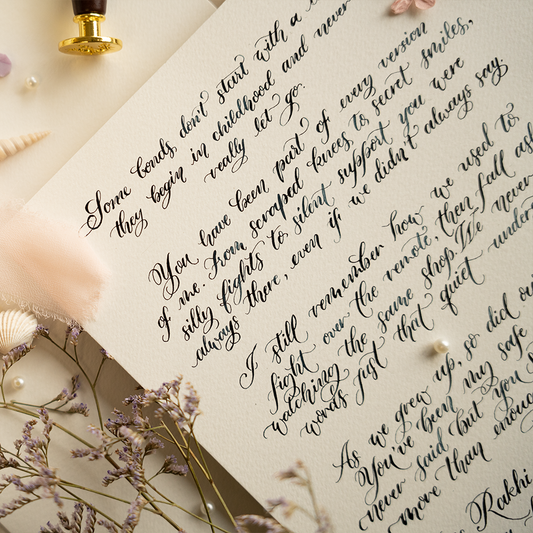 Some bonds don't start with a
they begin in childhood and never
really let go.
You have been part of every version
of me. From scraped knees to secret smiles,
silly fights to silent support you were
always there, even if we didn't always say
I still remember how we used to
fight over the remote, then fall
watching the same shop. We never
words just that quiet
As we grew up, so did
You've been my safe
never said but you
more than
Rakhi